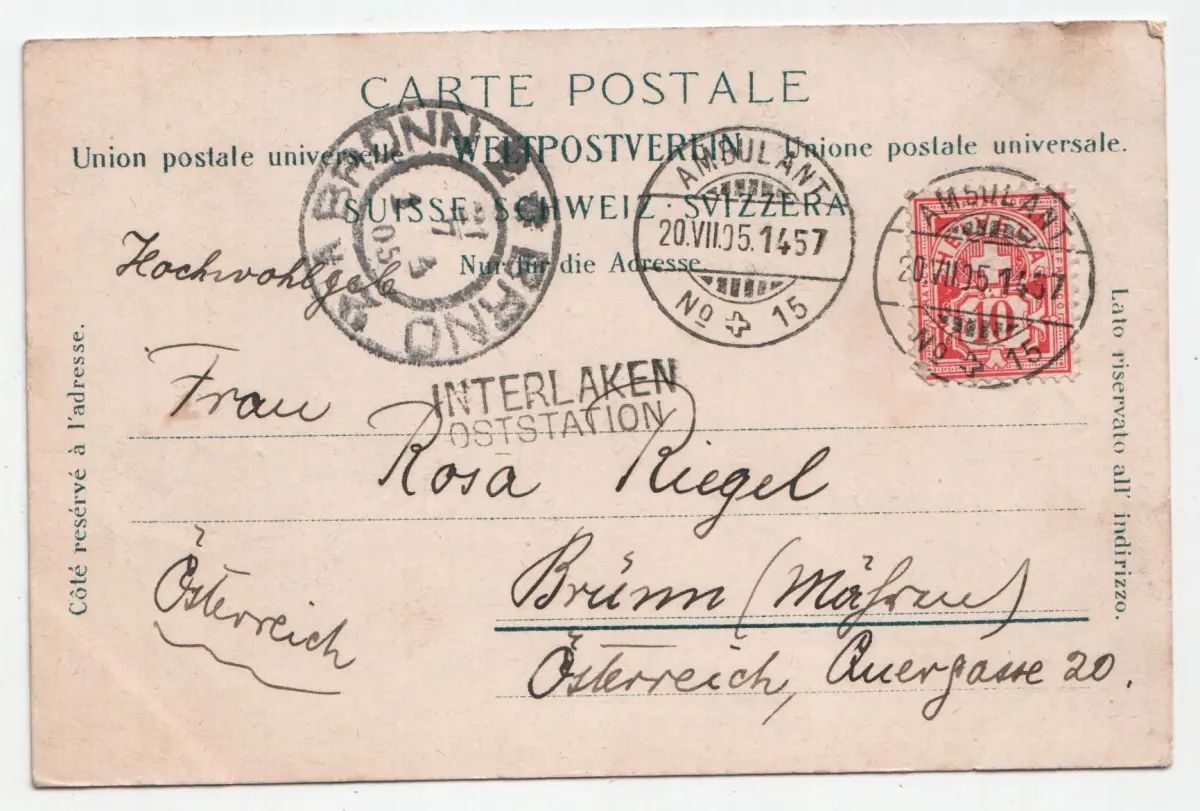 CARTE POSTALE
Union postale universelle WELTPOSTVEREIN Unione postale universale.
SUISSE · SCHWEIZ · SVIZZERA
Nur für die Adresse
BRÜNN BRNO
05
AMBULANT
20.VII.05.1457
No 15
AMBULANT
20.VII.05.1457
No 15
10
Hochwohlgeb
INTERLAKEN
OSTSTATION
Frau
Rosa Riegel
Brünn (Mähren)
Österreich
Österreich, Auergasse 20.
Côté resérvé à l'adresse.
Lato riservato all' indirizzo.